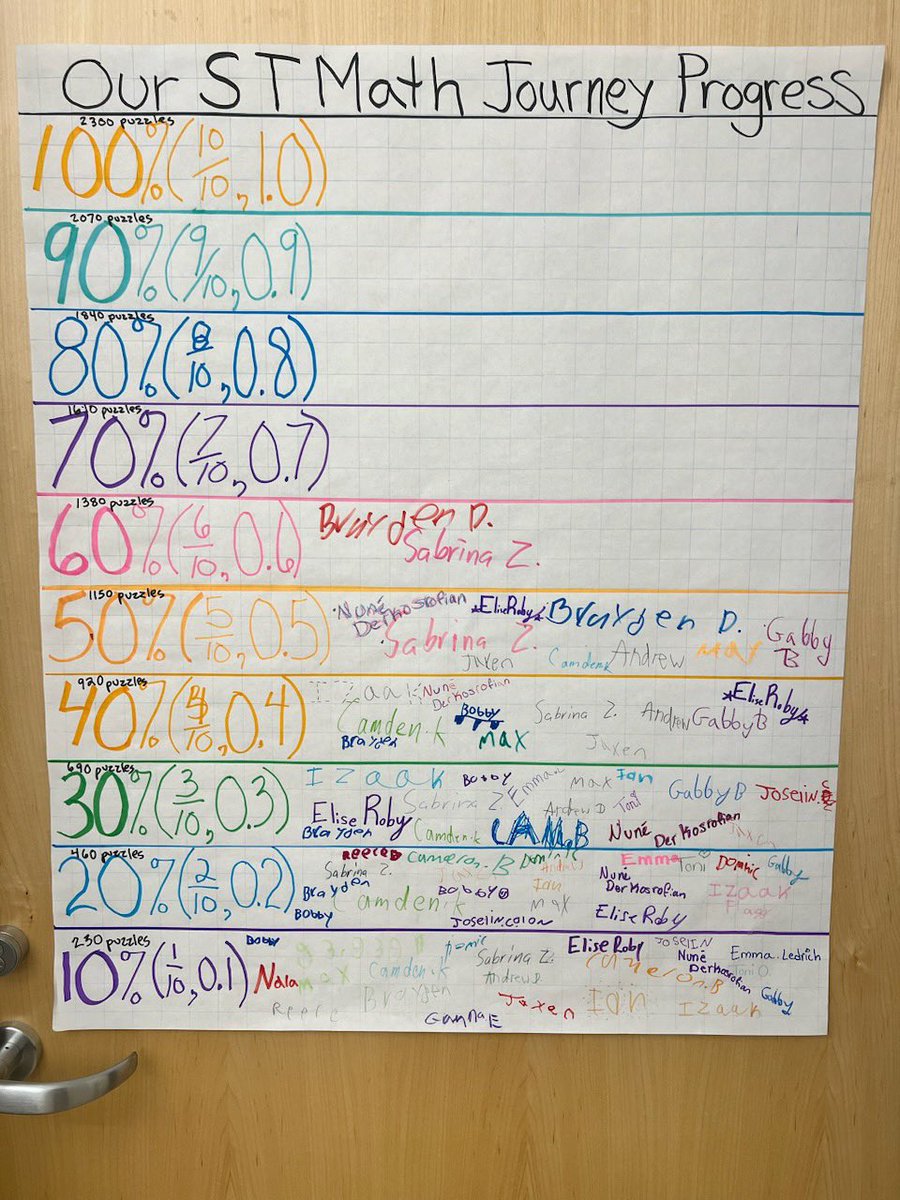 Our ST Math Journey Progress
2300 puzzles
100% (10/10, 1.0)
2070 puzzles
90% (9/10, 0.9)
1840 puzzles
80% (8/10, 0.8)
1610 puzzles
70% (7/10, 0.7)
1380 puzzles
60% (6/10, 0.6) Brayden D.
Sabrina Z.
1150 puzzles
50% (5/10, 0.5) Nuné Derkosrofian *Elise Roby* Brayden D. Gabby B
Sabrina Z. Jaxen Camden.k Andrew max
920 puzzles
40% (4/10, 0.4) Izaak Nuné Derkosrofian *Elise Roby*
Camden.k Bobby Sabrina Z. Andrew Gabby B
Brayden max Jaxen
690 puzzles
30% (3/10, 0.3) Izaak Bobby Emma max Ian Gabby B Joselin.C
Elise Roby Sabrina Z. Andrew D Toni
Brayden Camden.k CAM.B Nuné Derkosrofian Jaxen
460 puzzles
20% (2/10, 0.2) Reece Cameron.B Dominic Emma Toni Dominic Gabby
Sabrina Z. Ian Nuné Derkosrofian Izaak
Brayden Camden.k Bobby max
Bobby Joselin.colon Elise Roby
230 puzzles
10% (1/10, 0.1) Bobby Elise Roby Joselin
Nala Camden.k Sabrina Z. Cameron.B Nuné Derkosrofian Emma.Ledrich
Brayden Andrew D. Toni O. Gabby
Reece Jaxen Ian Izaak
Gianna E